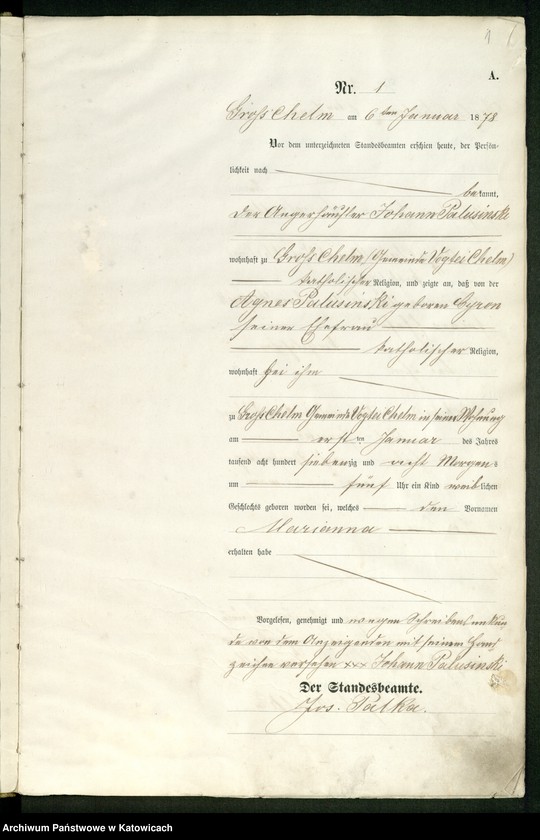 1
A.
Nr. 1
Groß Chelm am 6ten Januar 1878
Vor dem unterzeichneten Standesbeamten erschien heute, der Persön-
lichkeit nach
bekannt,
der Angerhäusler Johann Palusinski
wohnhaft zu Groß Chelm (Gemeinde Vogtei Chelm)
katholischer Religion, und zeigte an, daß von der
Agnes Palusinski geboren Cyron
seiner Ehefrau
katholischer Religion,
wohnhaft bei ihm
zu Groß Chelm Gemeinde Vogtei Chelm in seiner Wohnung
am ersten Januar des Jahres
tausend acht hundert siebenzig und acht Morgens
um fünf Uhr ein Kind weiblichen
Geschlechts geboren worden sei, welches den Vornamen
Marianna
erhalten habe
Vorgelesen, genehmigt und wegen Schreibensunkun
de von dem Anzeigenden mit seinem Hand
zeichen versehen xxx Johann Palusinski
Der Standesbeamte.
Jos. Palka.
Archiwum Państwowe w Katowicach